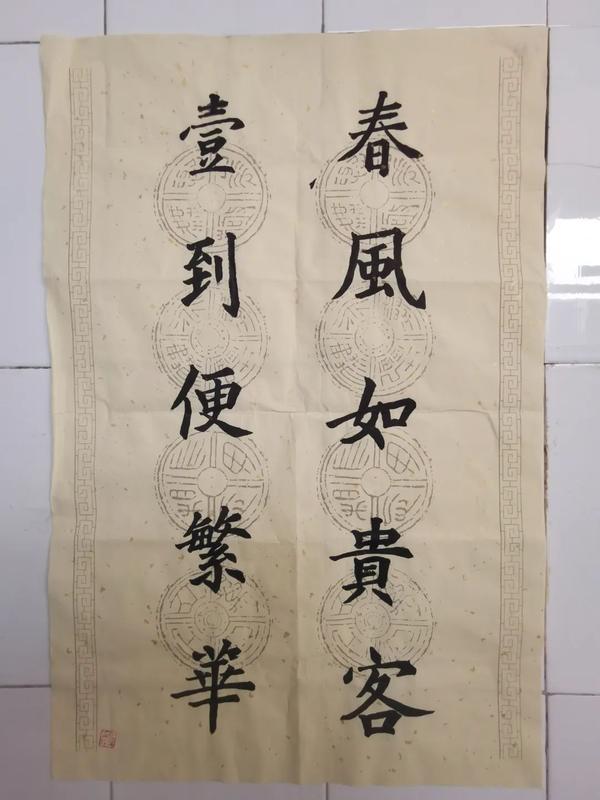 春風如貴客
壹到便繁華